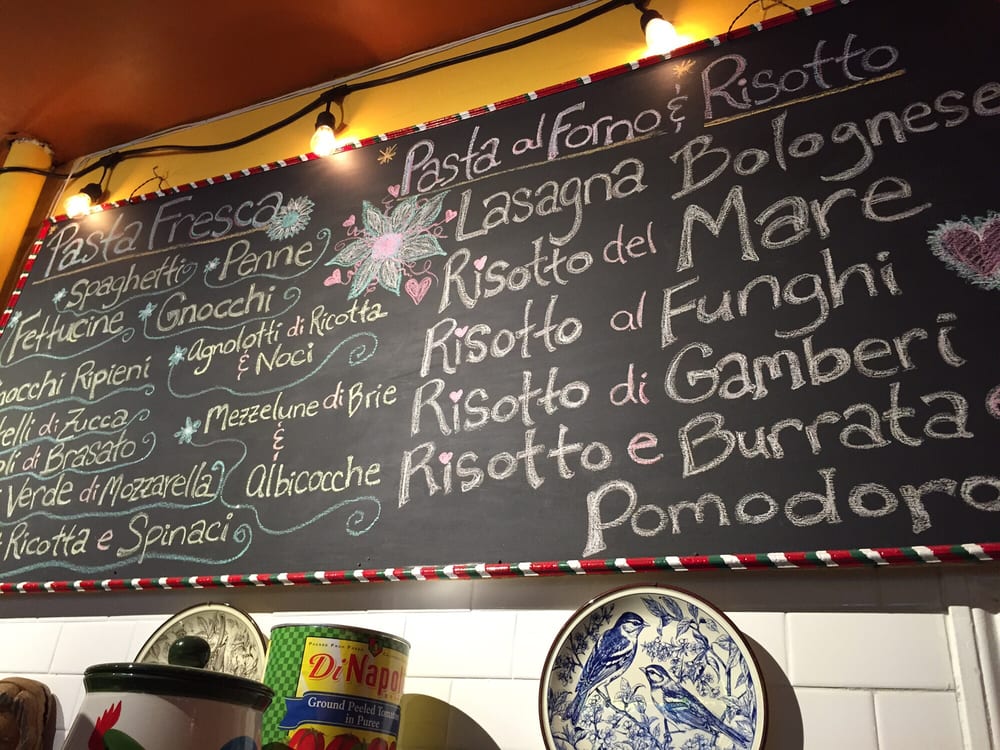 Pasta Fresca
Spaghetti
Penne
Fettucine
Gnocchi
Ripieni
Agnolotti di Ricotta
& Noci
di Zucca
di Brasato
Verde di Mozzarella
Ricotta e Spinaci
Mezzelune di Brie
&
Albicocche
Pasta al Forno & Risotto
Lasagna Bolognese
Risotto del Mare
Risotto al Funghi
Risotto di Gamberi
Risotto e Burrata
Pomodoro
DiNapoli
Ground Peeled
in Puree